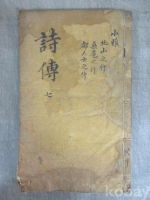 小雅
北山之什
桑扈之什
都人士之什
詩傳
七
kobay